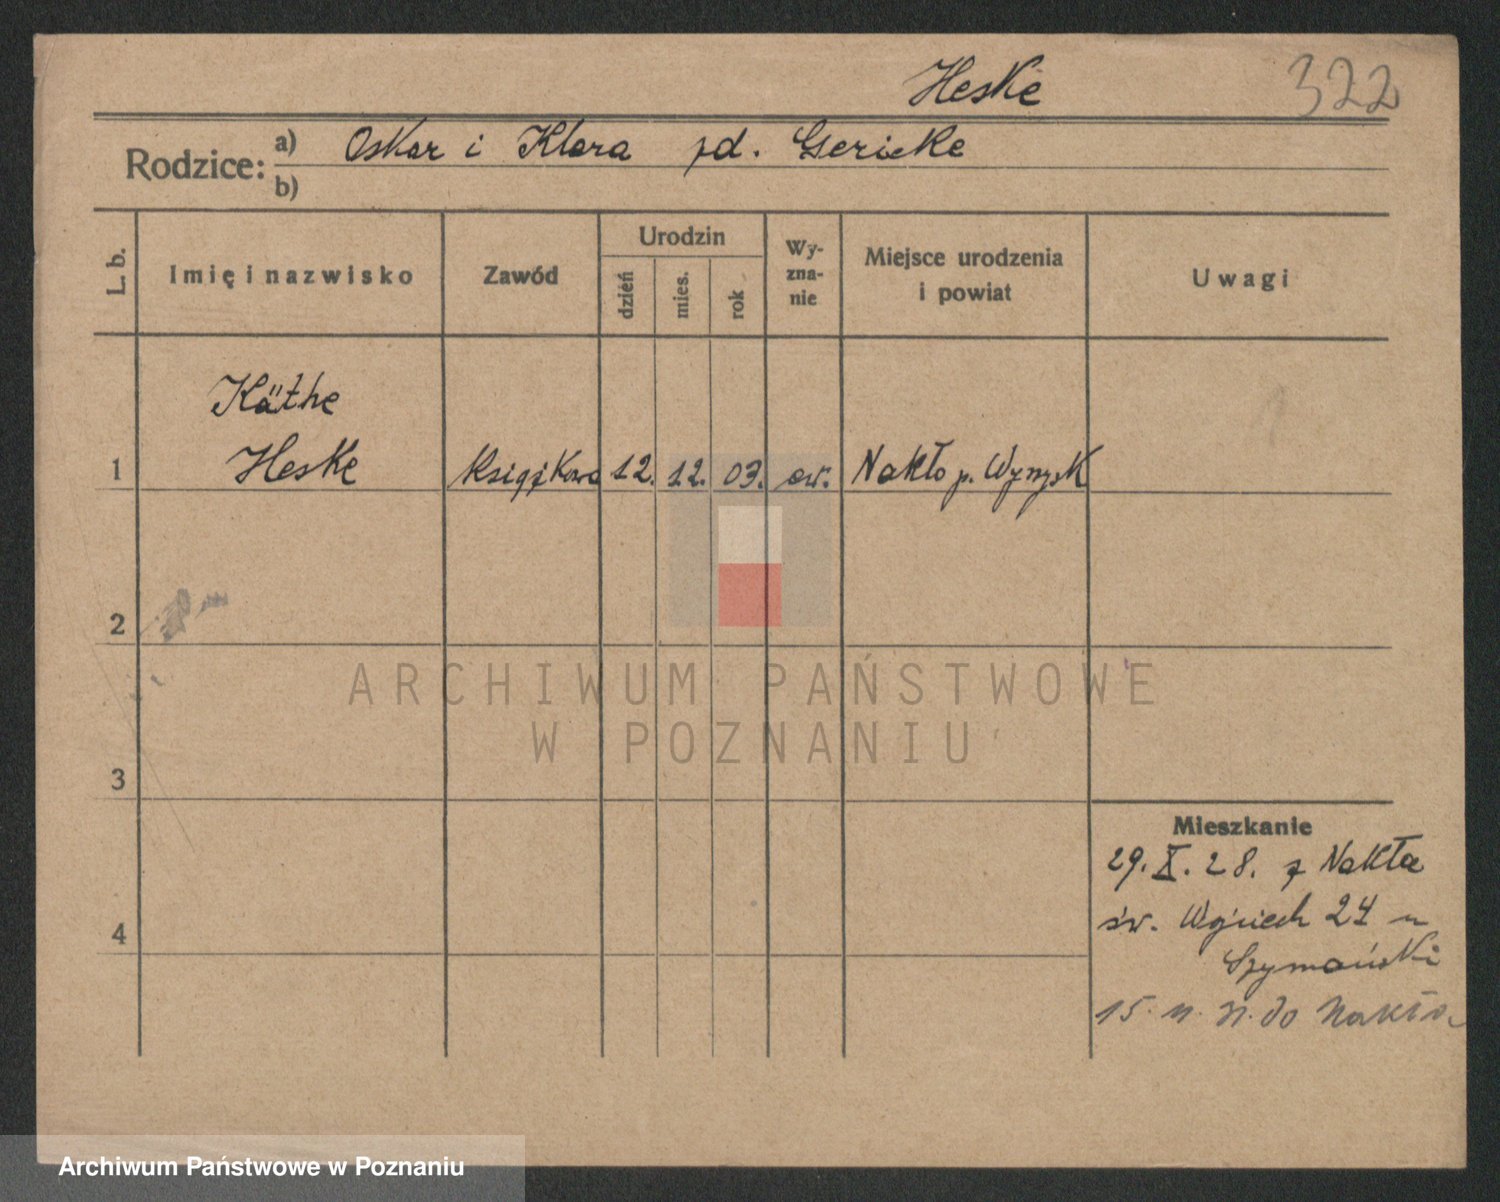 Heske
322
Rodzice: a) Oskar i Klara zd. Gericke
b)
L. b.
Imię i nazwisko
Zawód
Urodzin
dzień
mies.
rok
Wy-
zna-
nie
Miejsce urodzenia
i powiat
Uwagi
Käthe
1 Heske Książkowa 12. 12. 03. ew. Nakło p. Wyrzysk
2
3
4
Mieszkanie
29. X. 28. z Nakła
św. Wojciech 24 u
Szymański
15. 11. do Nakła
ARCHIWUM PAŃSTWOWE
W POZNANIU
Archiwum Państwowe w Poznaniu